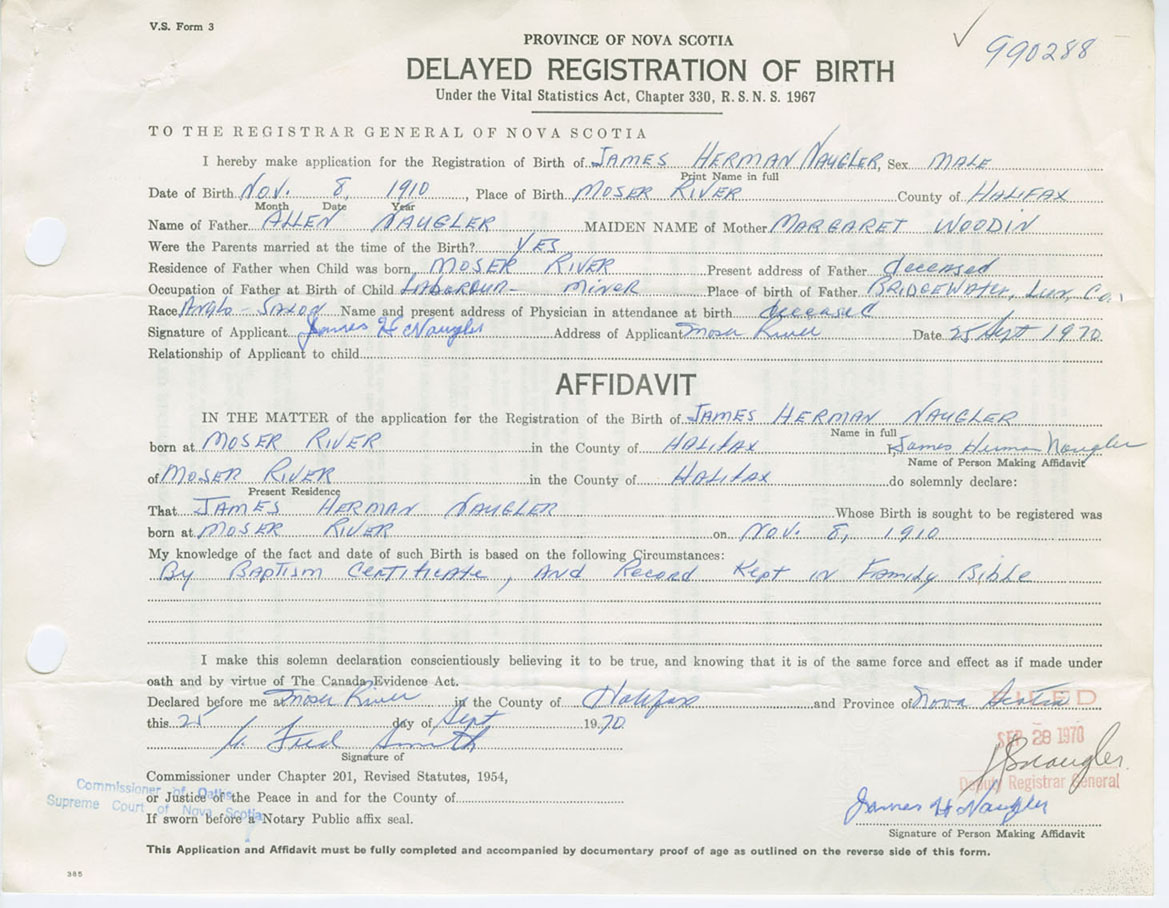 V.S. Form 3
990288
PROVINCE OF NOVA SCOTIA
DELAYED REGISTRATION OF BIRTH
Under the Vital Statistics Act, Chapter 330, R. S. N. S. 1967
TO THE REGISTRAR GENERAL OF NOVA SCOTIA
I hereby make application for the Registration of Birth of JAMES HERMAN NAUGLER, Sex MALE
Print Name in full
Date of Birth NOV. 8, 1910, Place of Birth MOSER RIVER County of HALIFAX
Month Date Year
Name of Father ALLEN NAUGLER MAIDEN NAME of Mother MARGARET WOODIN
Were the Parents married at the time of the Birth? YES
Residence of Father when Child was born MOSER RIVER Present address of Father deceased
Occupation of Father at Birth of Child LABOROUR - MINOR Place of birth of Father BRIDGEWATER, LUN. Co.
Race Anglo-Saxon Name and present address of Physician in attendance at birth deceased
Signature of Applicant James H Naugler Address of Applicant Moser River Date 25 Sept 1970
Relationship of Applicant to child
AFFIDAVIT
IN THE MATTER of the application for the Registration of the Birth of JAMES HERMAN NAUGLER
Name in full
born at MOSER RIVER in the County of HALIFAX James Herman Naugler
Name of Person Making Affidavit
of MOSER RIVER in the County of HALIFAX do solemnly declare:
Present Residence
That JAMES HERMAN NAUGLER Whose Birth is sought to be registered was
born at MOSER RIVER on NOV. 8, 1910
My knowledge of the fact and date of such Birth is based on the following Circumstances:
By Baptism Certificate, And Record Kept in Family Bible
I make this solemn declaration conscientiously believing it to be true, and knowing that it is of the same force and effect as if made under
oath and by virtue of The Canada Evidence Act.
Declared before me at Moser River in the County of Halifax and Province of Nova Scotia
FILED
this 25 day of Sept 1970
SEP 28 1970
Fred Smith
Signature of
Naugler
Deputy Registrar General
Commissioner under Chapter 201, Revised Statutes, 1954,
or Justice of the Peace in and for the County of
If sworn before a Notary Public affix seal.
Commissioner of Oaths
Supreme Court of Nova Scotia
James H Naugler
Signature of Person Making Affidavit
This Application and Affidavit must be fully completed and accompanied by documentary proof of age as outlined on the reverse side of this form.
385